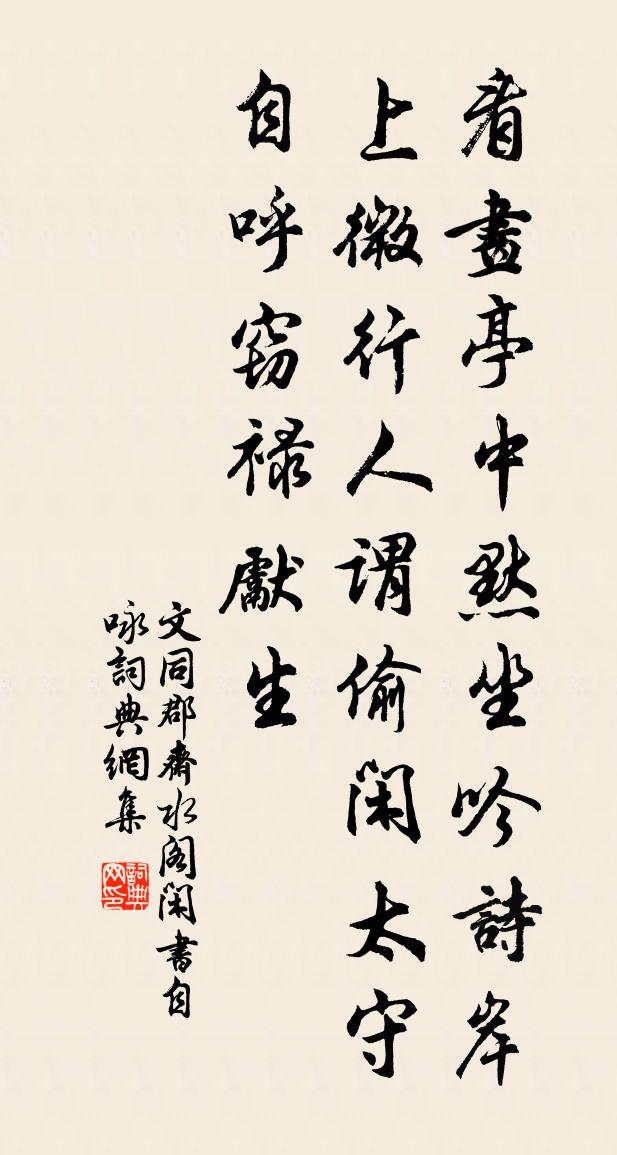 看畫亭中默坐吟詩岸
上微行人謂偷閑太守
自呼窈祿獻生
文同郡齋水閣閑書自
咏詞典網集
詞典网印